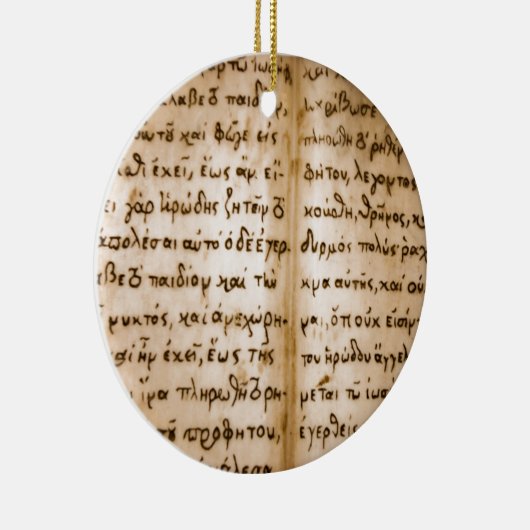 τῷ ἰωσήφ,
λαβε τὸ παιδίον,
αὐτοῦ καὶ φεῦγε εἰς
θι ἐκεῖ, ἕως ἂν εἴ-
ει γὰρ ἡρώδης ζητεῖν τὸ
ἀπολέσαι αὐτό ὁ δὲ ἐγερ-
βε τὸ παιδίον καὶ τὴν
νυκτὸς, καὶ ἀνεχώρη-
καὶ ἦν ἐκεῖ, ἕως τῆς
ἵνα πληρωθῇ τὸ ῥη-
τοῦ προφήτου,
άλεσα
καὶ
ἠκρίβωσε
πληρώθη τὸ ῥηθὲν
φήτου, λέγοντος
κούσθη, θρῆνος, κ
δυρμὸς πολύς· ῥαχ
κνα αὐτῆς, καὶ οὐ
ναι, ὅτι οὐκ εἰσίν
του ἡρώδου ἄγγελ
νεται τῷ ἰωσ
ἐγερθεὶς